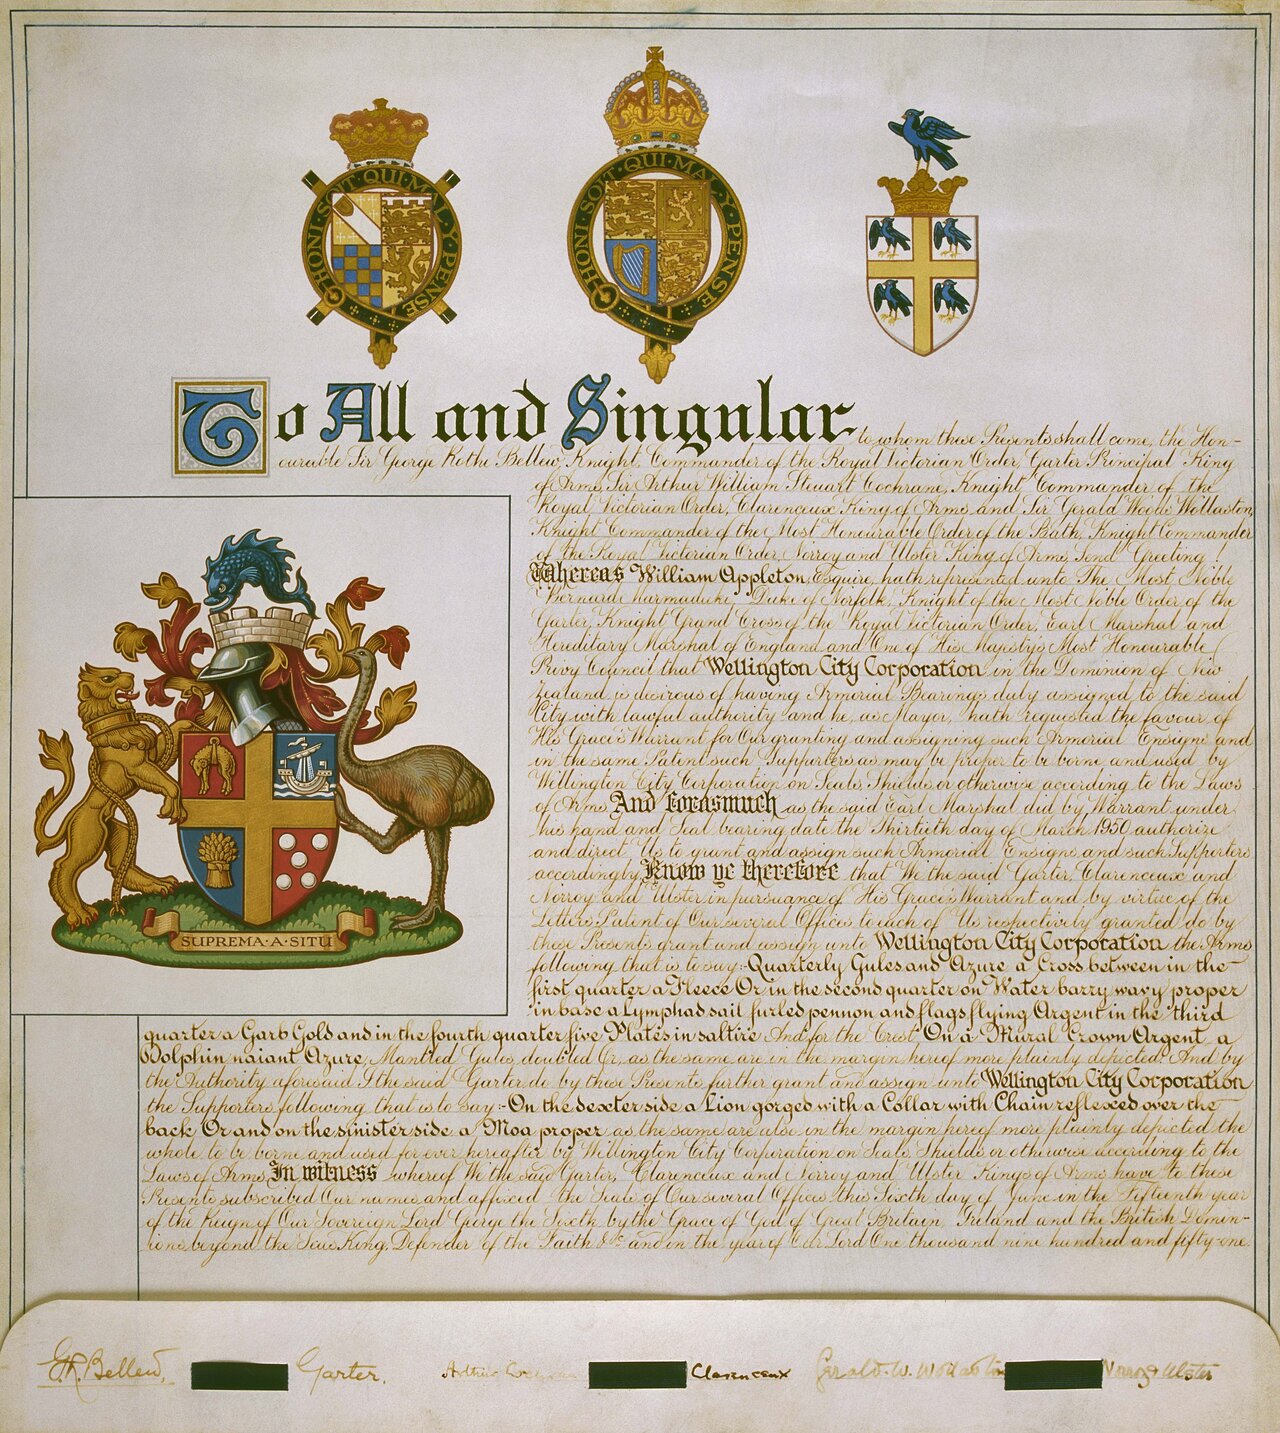 HONI·SOIT·QUI·MAL·Y·PENSE
HONI·SOIT·QUI·MAL·Y·PENSE
To All and Singular to whom these Presents shall come, the Hon-
ourable Sir George Rothe Bellew, Knight Commander of the Royal Victorian Order, Garter Principal King
of Arms, Sir Arthur William Steuart Cochrane, Knight Commander of the
Royal Victorian Order, Clarenceux King of Arms and Sir Gerald Woods Wollaston,
Knight Commander of the Most Honourable Order of the Bath, Knight Commander
of the Royal Victorian Order, Norroy and Ulster King of Arms, Send Greeting!
Whereas William Appleton, Esquire, hath represented unto The Most Noble
Bernard Marmaduke Duke of Norfolk, Knight of the Most Noble Order of the
Garter, Knight Grand Cross of the Royal Victorian Order, Earl Marshal and
Hereditary Marshal of England and One of His Majesty's Most Honourable
Privy Council that Wellington City Corporation in the Dominion of New
Zealand is desirous of having Armorial Bearings duly assigned to the said
City with lawful authority and he, as Mayor, hath requested the favour of
His Grace's Warrant for Our granting and assigning such Armorial Ensigns and
in the same Patent such Supporters as may be proper to be borne and used by
Wellington City Corporation on Seals, Shields or otherwise according to the Laws
of Arms And forasmuch as the said Earl Marshal did by Warrant under
his hand and Seal bearing date the Thirtieth day of March 1950 authorize
and direct Us to grant and assign such Armorial Ensigns and such Supporters
accordingly Know ye therefore that We the said Garter, Clarenceux and
Norroy and Ulster in pursuance of His Grace's Warrant and by virtue of the
Letters Patent of Our several Offices to each of Us respectively granted do by
these Presents grant and assign unto Wellington City Corporation the Arms
following that is to say:- Quarterly Gules and Azure a Cross between in the
first quarter a Fleece Or in the second quarter on Water barry wavy proper
in base a Lymphad sail furled pennon and flags flying Argent in the third
quarter a Garb Gold and in the fourth quarter five Plates in saltire And for the Crest On a Mural Crown Argent a
Dolphin naiant Azure, Mantled Gules, doubled Or, as the same are in the margin hereof more plainly depicted. And by
the Authority aforesaid I the said Garter do by these Presents further grant and assign unto Wellington City Corporation
the Supporters following that is to say:- On the dexter side a Lion gorged with a Collar with Chain reflexed over the
back Or and on the sinister side a Moa proper as the same are also in the margin hereof more plainly depicted the
whole to be borne and used for ever hereafter by Wellington City Corporation on Seals, Shields or otherwise according to the
Laws of Arms In witness whereof We the said Garter, Clarenceux and Norroy and Ulster Kings of Arms have to these
Presents subscribed Our names and affixed the Seals of Our several Offices this Sixth day of June in the Fifteenth year
of the Reign of Our Sovereign Lord George the Sixth by the Grace of God of Great Britain, Ireland and the British Domin-
ions beyond the Seas King, Defender of the Faith &c. and in the year of Our Lord One thousand nine hundred and fifty-one.
SUPREMA·A·SITU
G.R. Bellew, Garter. Arthur Clarenceux Gerald W. Wollaston Norroy & Ulster